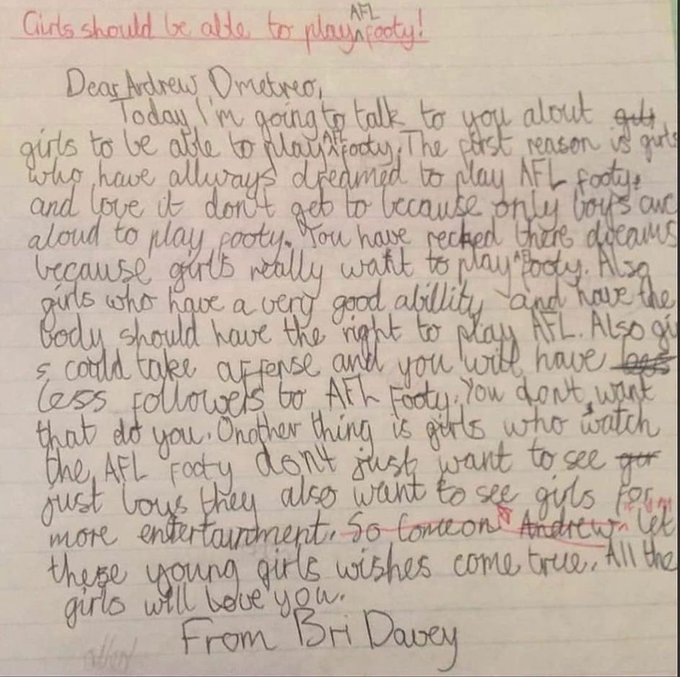 Girls should be able to play AFL footy!
Dear Andrew Dmetreo,
Today I'm going to talk to you about
girls to be able to play AFL footy. The first reason is girls
who have allways dreamed to play AFL footy,
and love it don't get to because only boys are
aloud to play footy. You have recked there dreams
because girls really want to play AFL footy. Also
girls who have a very good abillity and have the
body should have the right to play AFL. Also gi
s could take affense and you will have
less followers to AFL Footy. You don't want
that do you. Onother thing is girls who watch
the AFL Footy don't just want to see
just boys they also want to see girls for
more entertainment. So Come on Andrew let
these young girls wishes come true. All the
girls will love you.
From Bri Davey